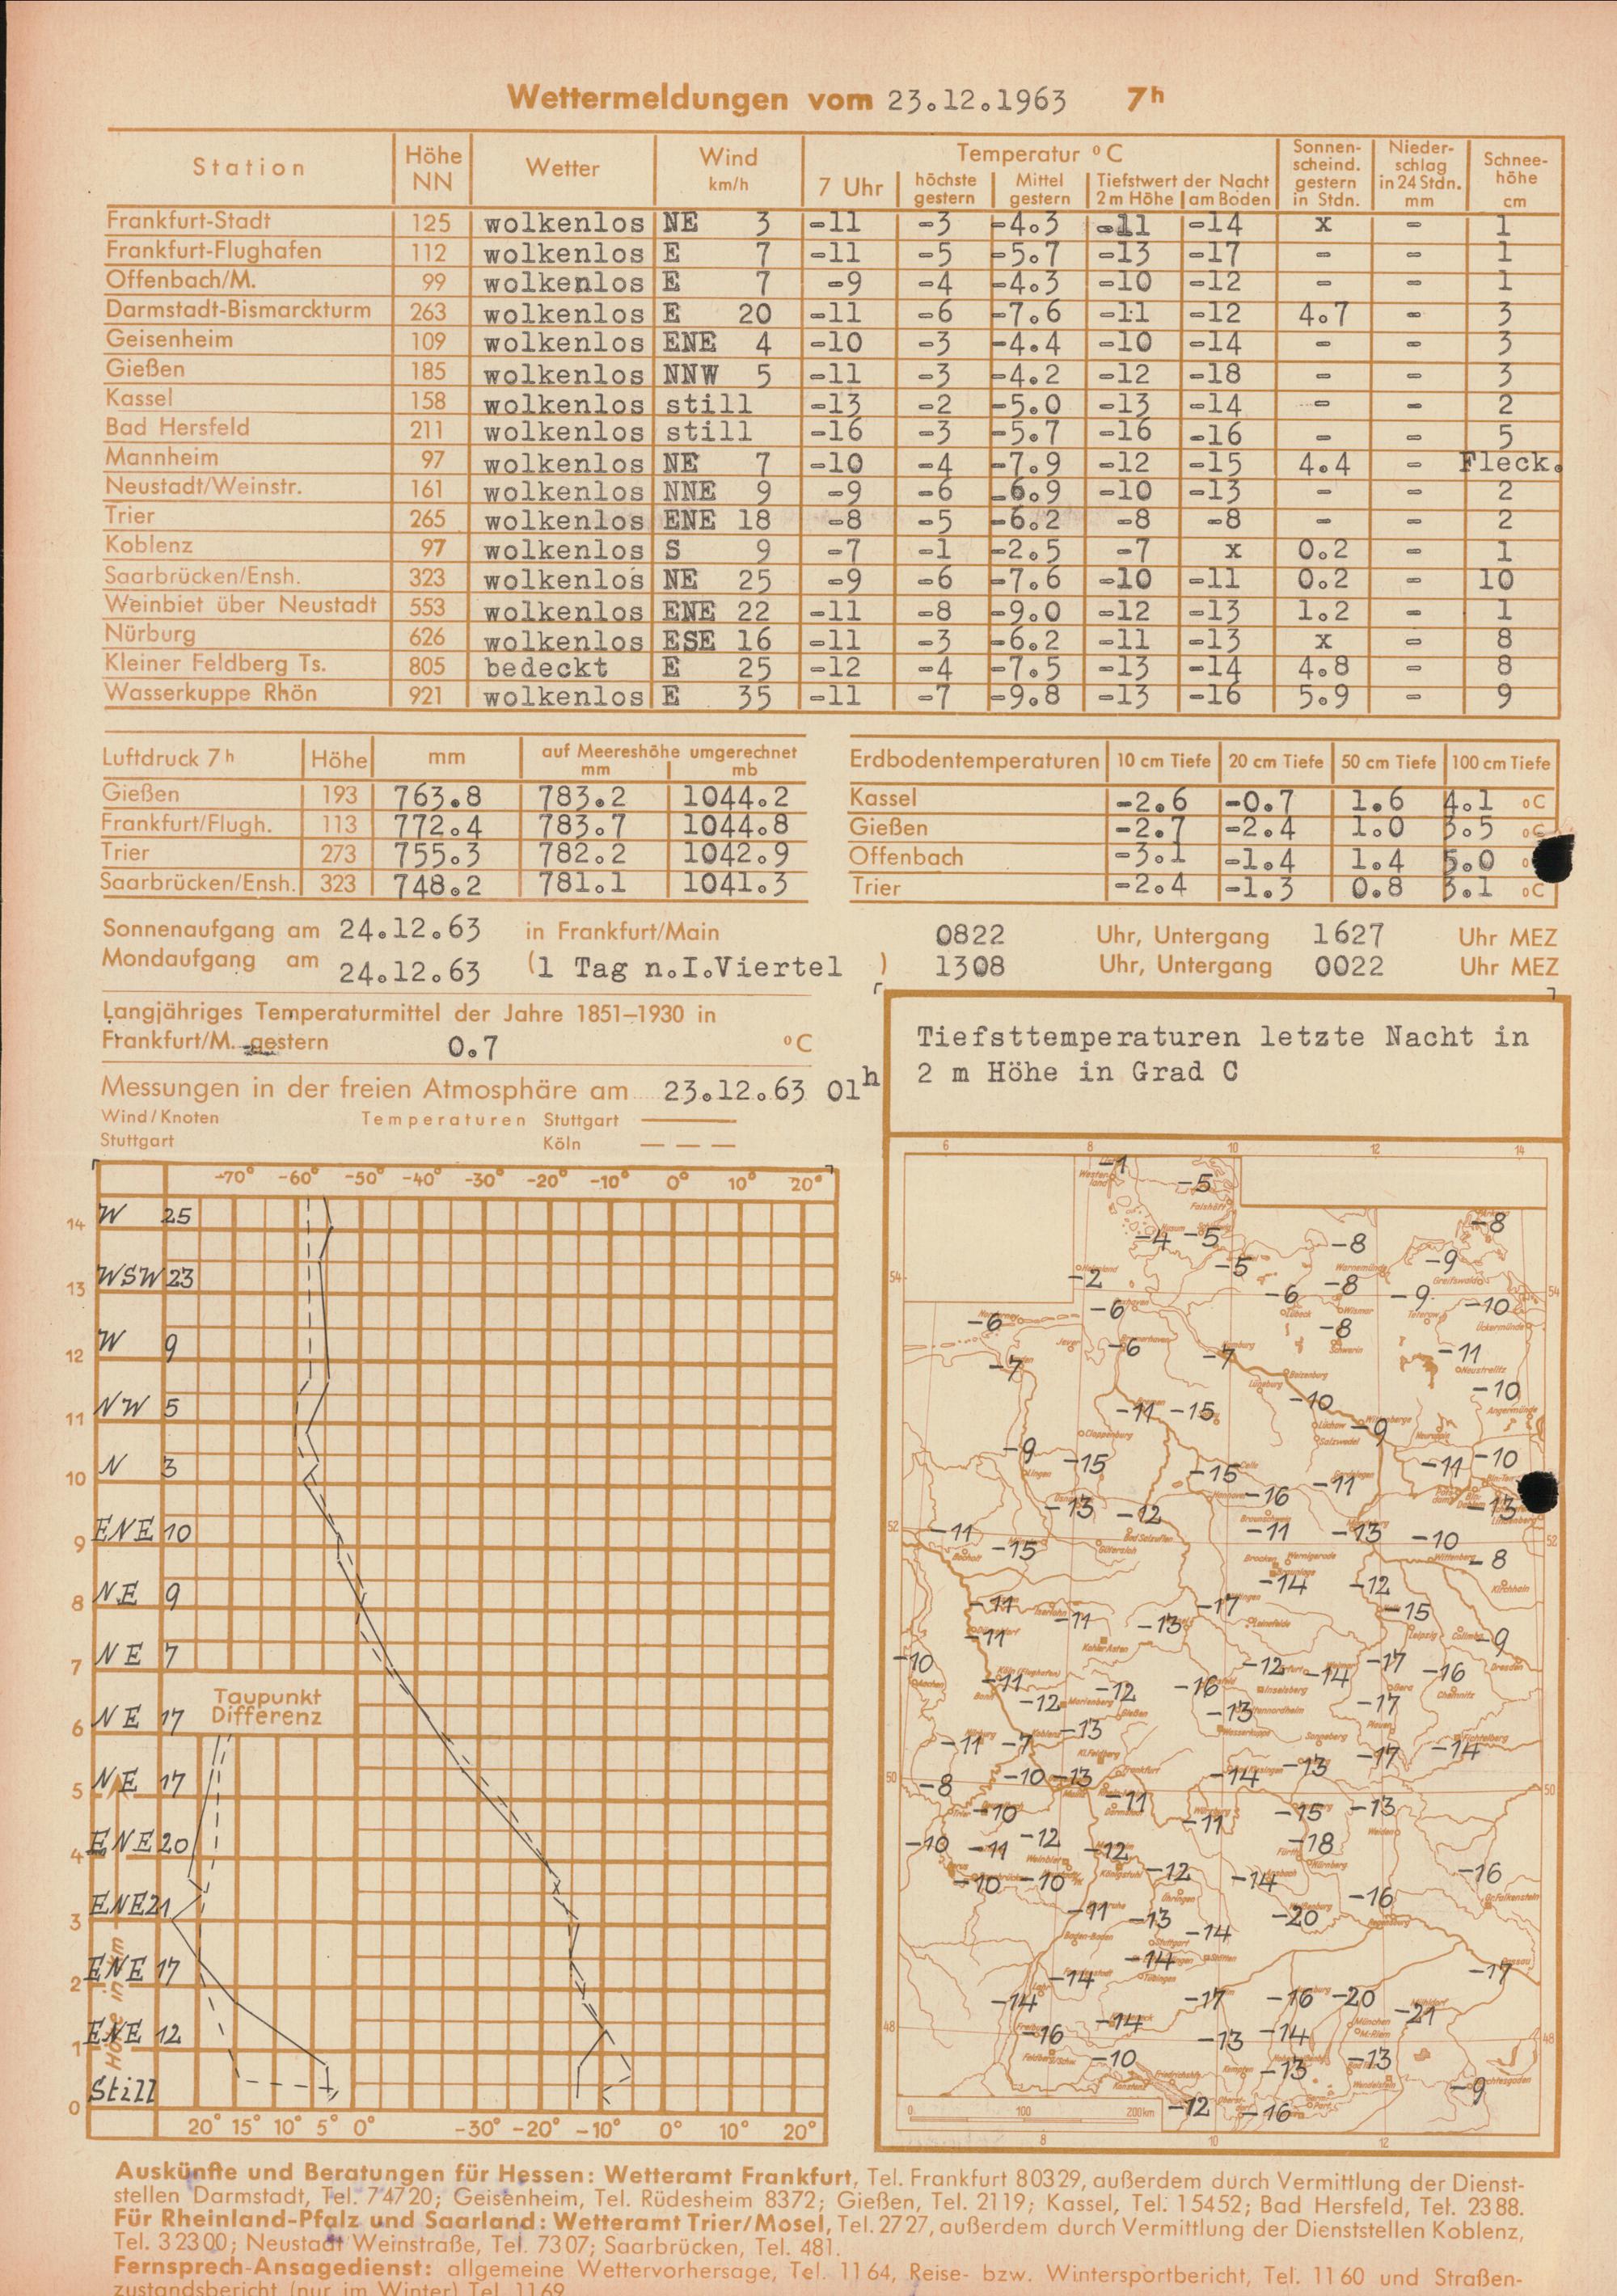 Wettermeldungen vom 23.12.1963 7h
Station Höhe NN Wetter Wind km/h Temperatur °C Sonnenscheind. gestern in Stdn. Niederschlag in 24 Stdn. mm Schneehöhe cm
7 Uhr höchste gestern Mittel gestern Tiefstwert der Nacht 2 m Höhe am Boden
Frankfurt-Stadt 125 wolkenlos NE 3 -11 -3 -4.3 -11 -14 x - 1
Frankfurt-Flughafen 112 wolkenlos E 7 -11 -5 -5.7 -13 -17 - - 1
Offenbach/M. 99 wolkenlos E 7 -9 -4 -4.3 -10 -12 - - 1
Darmstadt-Bismarckturm 263 wolkenlos E 20 -11 -6 -7.6 -11 -12 4.7 - 3
Geisenheim 109 wolkenlos ENE 4 -10 -3 -4.4 -10 -14 - - 3
Gießen 185 wolkenlos NNW 5 -11 -3 -4.2 -12 -18 - - 3
Kassel 158 wolkenlos still -13 -2 -5.0 -13 -14 - - 2
Bad Hersfeld 211 wolkenlos still -16 -3 -5.7 -16 -16 - - 5
Mannheim 97 wolkenlos NE 7 -10 -4 -7.9 -12 -15 4.4 - Fleck.
Neustadt/Weinstr. 161 wolkenlos NNE 9 -9 -6 -6.9 -10 -13 - - 2
Trier 265 wolkenlos ENE 18 -8 -5 -6.2 -8 -8 - - 2
Koblenz 97 wolkenlos S 9 -7 -1 -2.5 -7 x 0.2 - 1
Saarbrücken/Ensh. 323 wolkenlos NE 25 -9 -6 -7.6 -10 -11 0.2 - 10
Weinbiet über Neustadt 553 wolkenlos ENE 22 -11 -8 -9.0 -12 -13 1.2 - 1
Nürburg 626 wolkenlos ESE 16 -11 -3 -6.2 -11 -13 x - 8
Kleiner Feldberg Ts. 805 bedeckt E 25 -12 -4 -7.5 -13 -14 4.8 - 8
Wasserkuppe Rhön 921 wolkenlos E 35 -11 -7 -9.8 -13 -16 5.9 - 9
Luftdruck 7h Höhe mm auf Meereshöhe umgerechnet mm mb
Gießen 193 763.8 783.2 1044.2
Frankfurt/Flugh. 113 772.4 783.7 1044.8
Trier 273 755.3 782.2 1042.9
Saarbrücken/Ensh. 323 748.2 781.1 1041.3
Erdbodentemperaturen 10 cm Tiefe 20 cm Tiefe 50 cm Tiefe 100 cm Tiefe
Kassel -2.6 -0.7 1.6 4.1 °C
Gießen -2.7 -2.4 1.0 3.5 °C
Offenbach -3.1 -1.4 1.4 5.0 °
Trier -2.4 -1.3 0.8 3.1 °C
Sonnenaufgang am 24.12.63 in Frankfurt/Main 0822 Uhr, Untergang 1627 Uhr MEZ
Mondaufgang am 24.12.63 (1 Tag n.I.Viertel ) 1308 Uhr, Untergang 0022 Uhr MEZ
Langjähriges Temperaturmittel der Jahre 1851–1930 in
Frankfurt/M. gestern 0.7 °C
Messungen in der freien Atmosphäre am 23.12.63 01h
Wind/Knoten Temperaturen Stuttgart
Stuttgart Köln
-70° -60° -50° -40° -30° -20° -10° 0° 10° 20°
14 W 25
13 WSW 23
12 W 9
11 NW 5
10 N 3
9 ENE 10
8 NE 9
7 NE 7
Taupunkt
Differenz
6 NE 17
5 NE 17
4 ENE 20
3 ENE 21
2 ENE 17
1 ENE 12
0 Still
Höhe in km
20° 15° 10° 5° 0° -30° -20° -10° 0° 10° 20°
Tiefsttemperaturen letzte Nacht in
2 m Höhe in Grad C
6 8 10 12 14
-1
-5
-8
-4 -5 -8
-9
-2 -5 -8
-6 -9 -10
-6 -6 -8
-6 -7 -11
-7 -10
-10
-11 -15 -9
-9 -15 -15 -11 -11 -10
-13 -12 -16 -13
-11 -15 -11 -13 -10 -8
-14 -12
-11 -11 -13 -17 -15
-11 -9
-10 -11 -12 -14 -17 -16
-12 -12 -16 -13 -17
-11 -7 -13 -17 -14
-8 -10 -13 -14 -13
-10 -11 -11 -15 -13
-10 -11 -12 -12 -18
-10 -10 -12 -14 -16 -16
-11 -13 -14 -20
-14 -14 -17
-14 -17 -16 -20 -21
-16 -14 -13 -14
-10 -13 -13 -9
-12 -16
54 54
52 52
50 50
48 48
0 100 200 km
8 10 12
Auskünfte und Beratungen für Hessen: Wetteramt Frankfurt, Tel. Frankfurt 80329, außerdem durch Vermittlung der Dienst-
stellen Darmstadt, Tel. 74720; Geisenheim, Tel. Rüdesheim 8372; Gießen, Tel. 2119; Kassel, Tel. 15452; Bad Hersfeld, Tel. 2388.
Für Rheinland-Pfalz und Saarland: Wetteramt Trier/Mosel, Tel. 2727, außerdem durch Vermittlung der Dienststellen Koblenz,
Tel. 32300; Neustadt Weinstraße, Tel. 7307; Saarbrücken, Tel. 481.
Fernsprech-Ansagedienst: allgemeine Wettervorhersage, Tel. 1164, Reise- bzw. Wintersportbericht, Tel. 1160 und Straßen-
zustandsbericht (nur im Winter) Tel. 1169